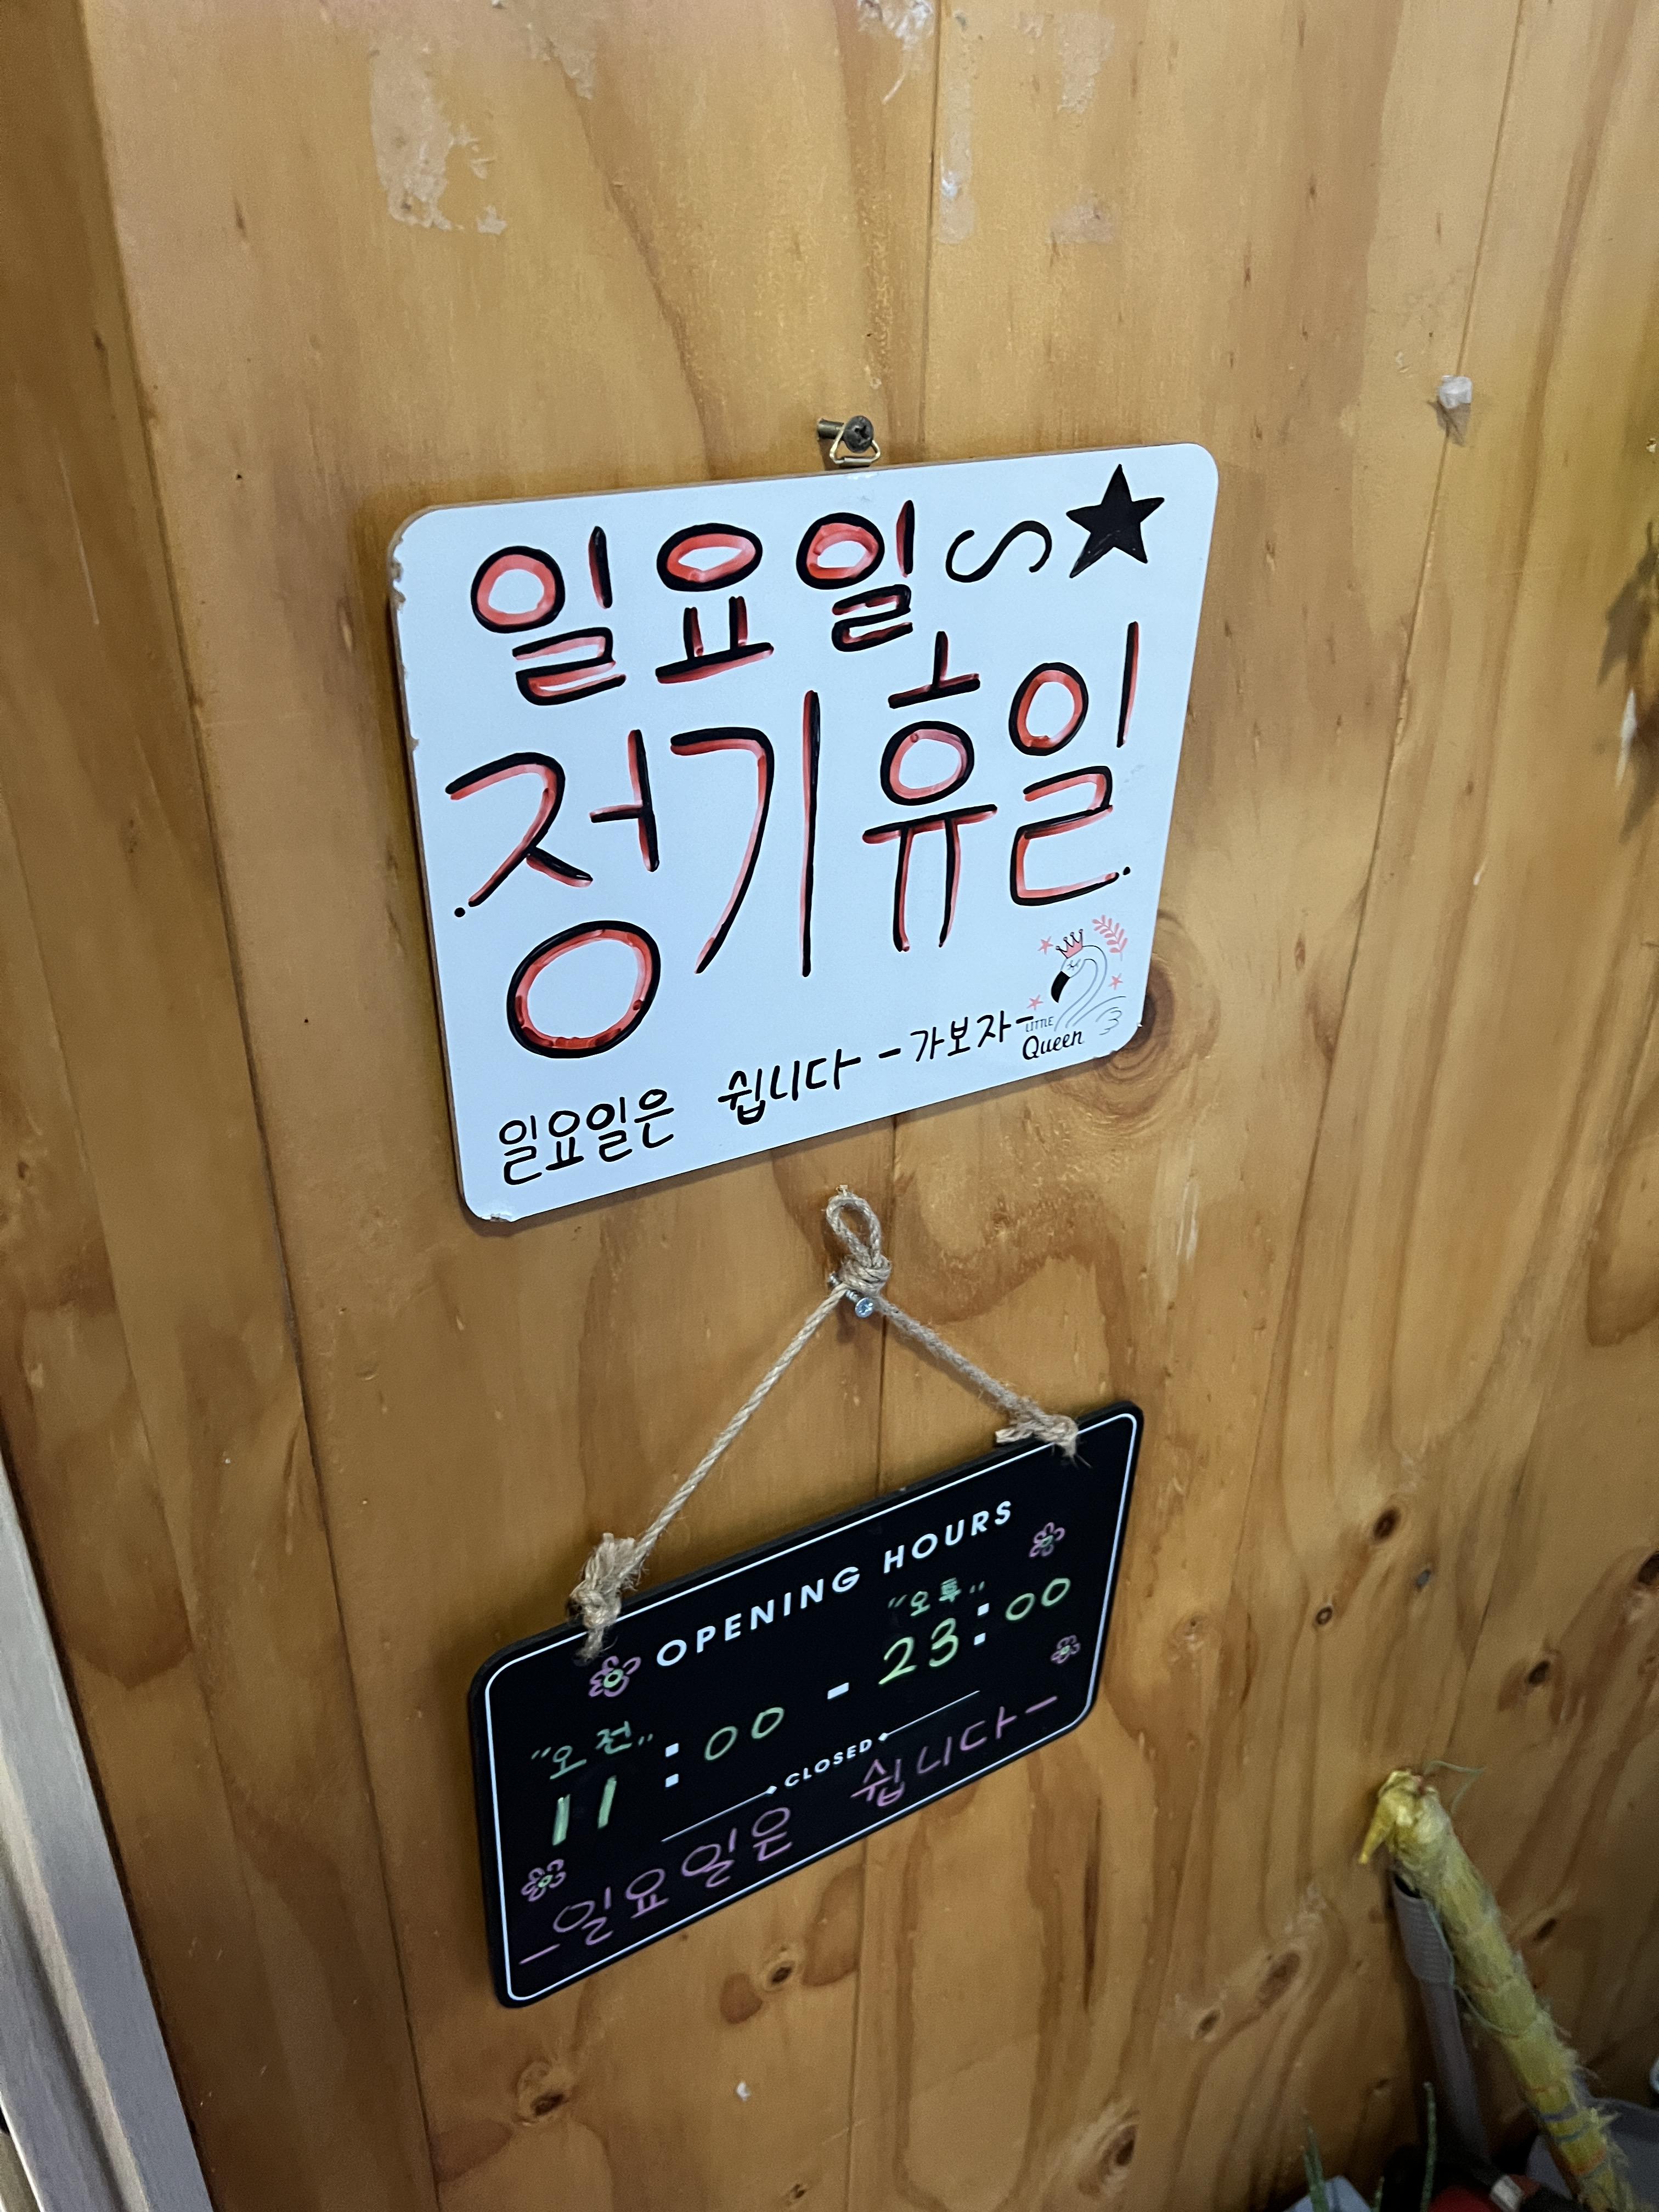 일요일~★
정기휴일
일요일은 쉽니다 -가보자-
LITTLE
Queen
OPENING HOURS
"오전" "오후"
11:00 - 23:00
CLOSED
-일요일은 쉽니다-